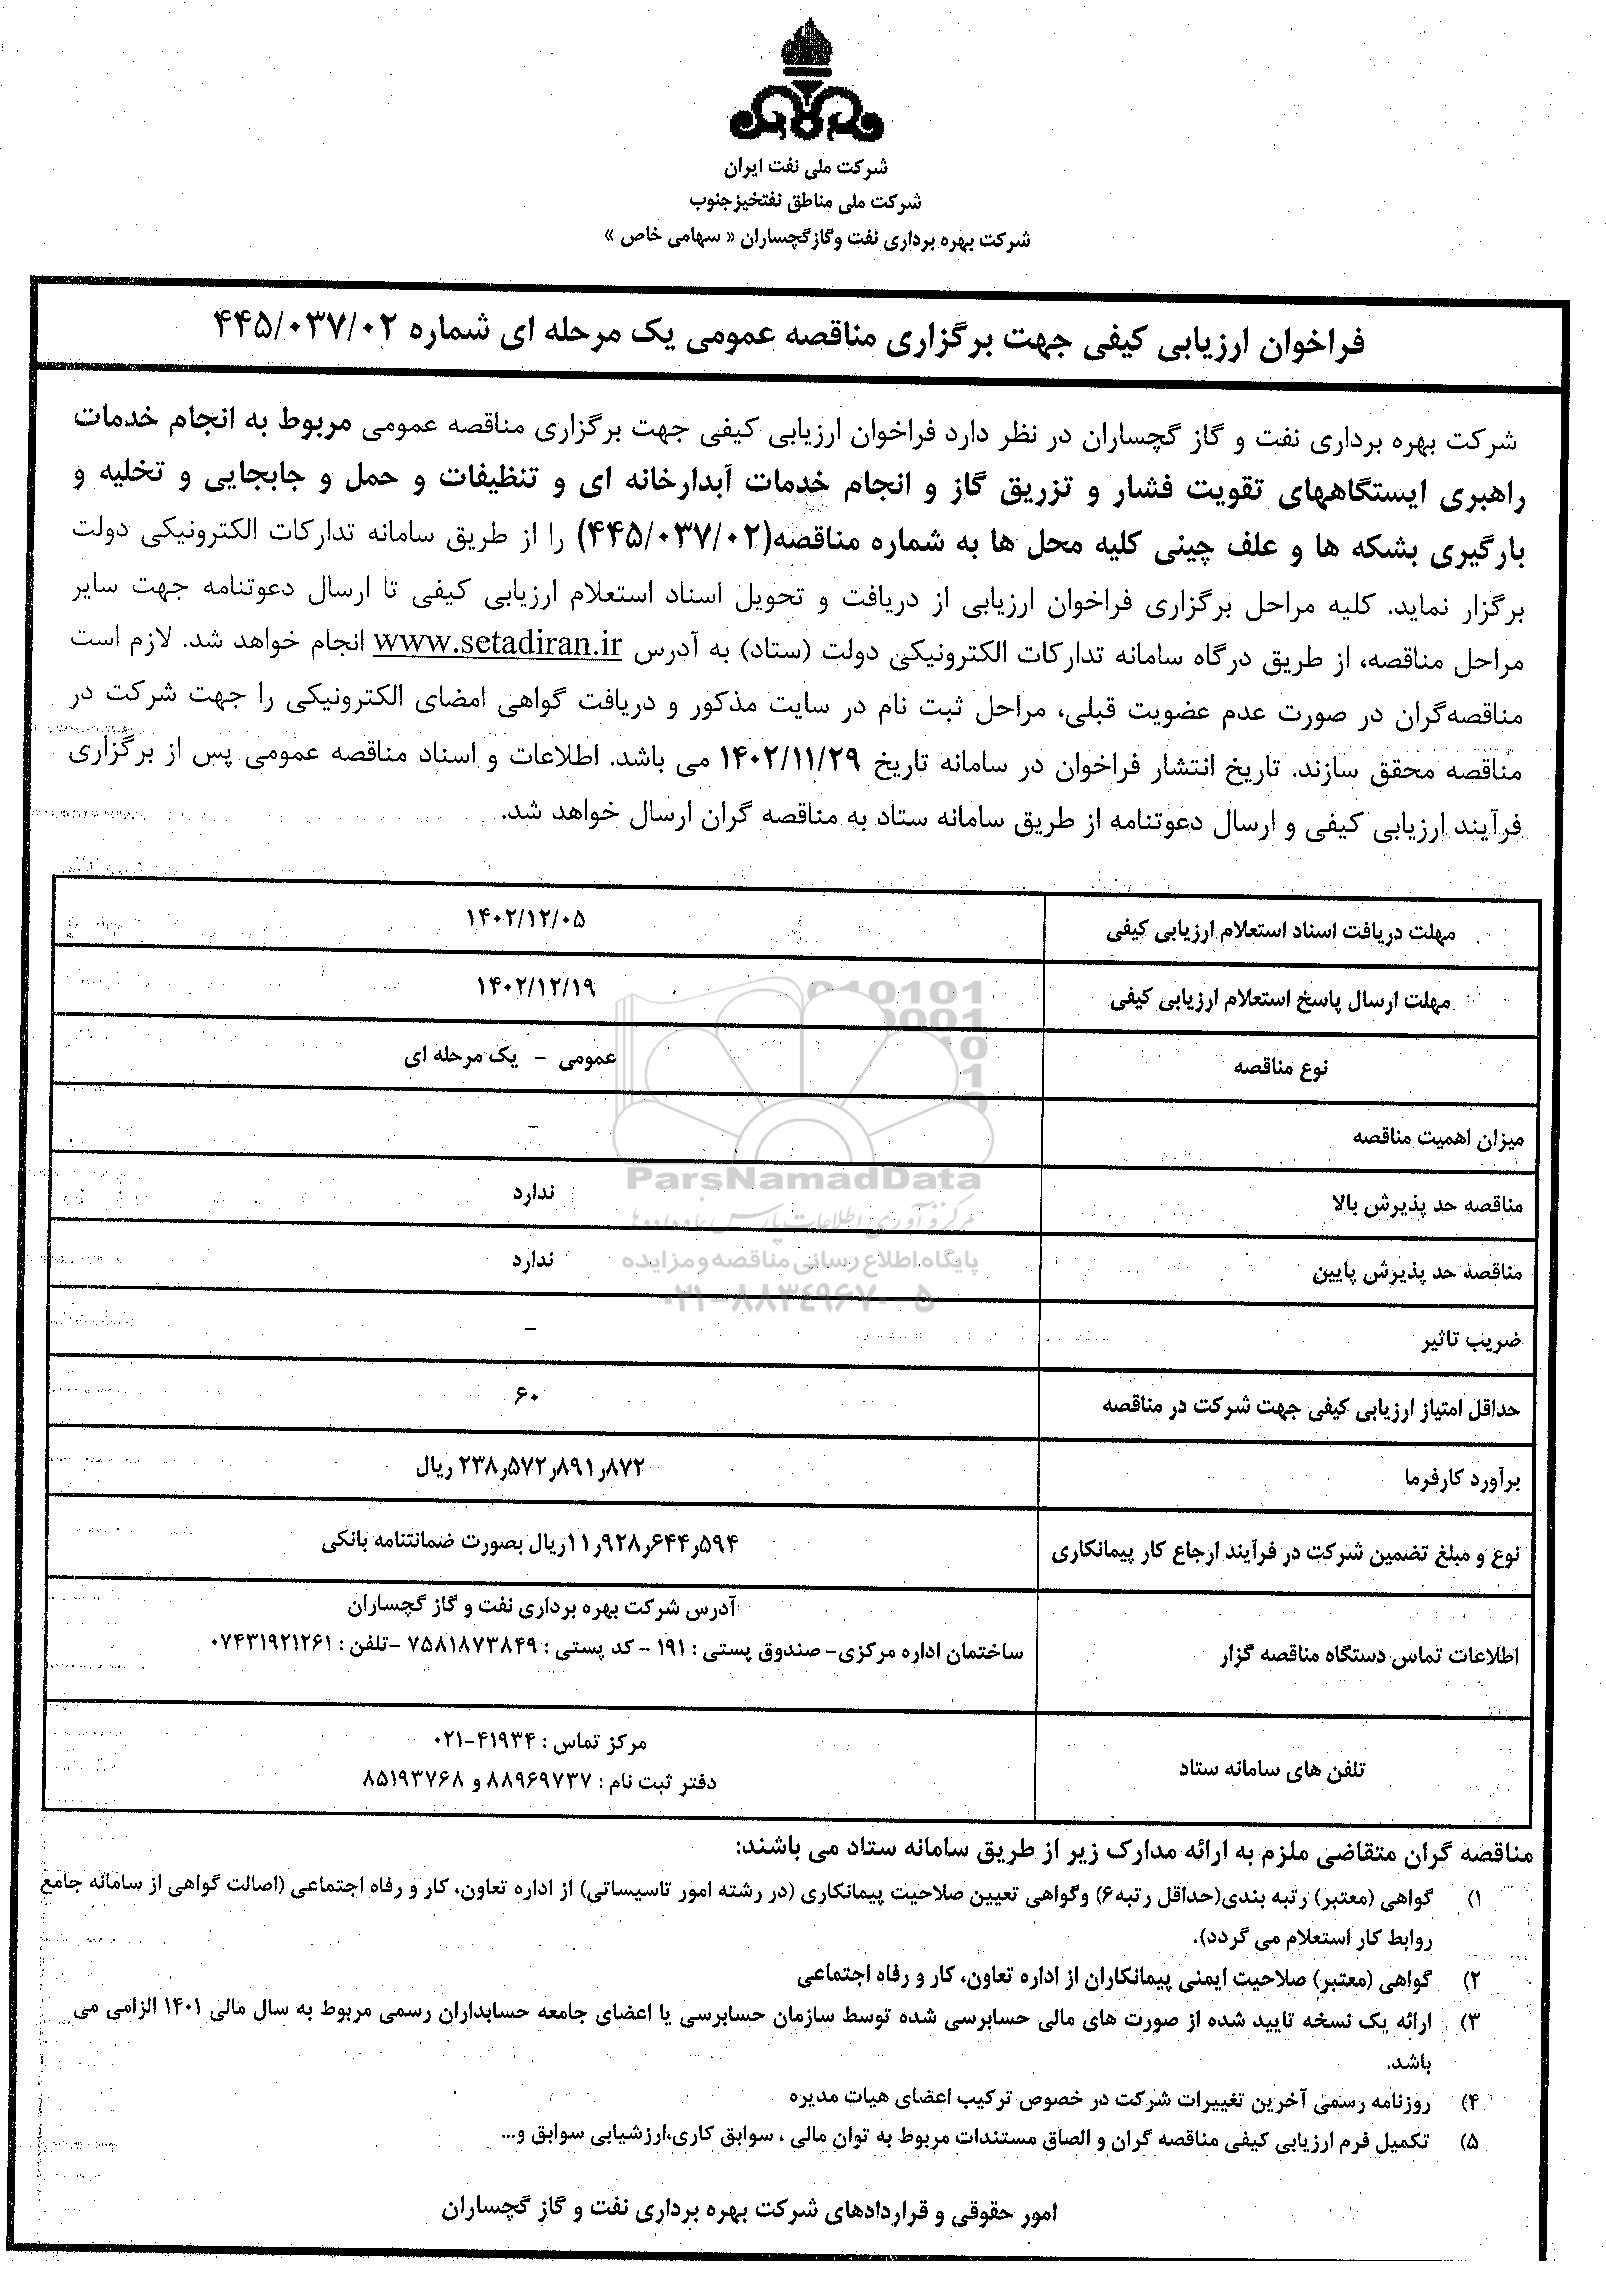 شرکت ملی نفت ایران
شرکت ملی مناطق نفتخیز جنوب
شرکت بهره برداری نفت وگاز گچساران « سهامی خاص »
فراخوان ارزیابی کیفی جهت برگزاری مناقصه عمومی یک مرحله ای شماره ۴۴۵/۰۳۷/۰۲
شرکت بهره برداری نفت و گاز گچساران در نظر دارد فراخوان ارزیابی کیفی جهت برگزاری مناقصه عمومی مربوط به انجام خدمات
راهبری ایستگاههای تقویت فشار و تزریق گاز و انجام خدمات آبدارخانه ای و تنظیفات و حمل و جابجایی و تخلیه و
بارگیری بشکه ها و علف چینی کلیه محل ها به شماره مناقصه(۴۴۵/۰۳۷/۰۲) را از طریق سامانه تدارکات الکترونیکی دولت
برگزار نماید. کلیه مراحل برگزاری فراخوان ارزیابی از دریافت و تحویل اسناد استعلام ارزیابی کیفی تا ارسال دعوتنامه جهت سایر
مراحل مناقصه، از طریق درگاه سامانه تدارکات الکترونیکی دولت (ستاد) به آدرس www.setadiran.ir انجام خواهد شد. لازم است
مناقصه‌گران در صورت عدم عضویت قبلی، مراحل ثبت نام در سایت مذکور و دریافت گواهی امضای الکترونیکی را جهت شرکت در
مناقصه محقق سازند. تاریخ انتشار فراخوان در سامانه تاریخ ۱۴۰۲/۱۱/۲۹ می باشد. اطلاعات و اسناد مناقصه عمومی پس از برگزاری
فرآیند ارزیابی کیفی و ارسال دعوتنامه از طریق سامانه ستاد به مناقصه گران ارسال خواهد شد.
مهلت دریافت اسناد استعلام ارزیابی کیفی ۱۴۰۲/۱۲/۰۵
مهلت ارسال پاسخ استعلام ارزیابی کیفی ۱۴۰۲/۱۲/۱۹
نوع مناقصه عمومی – یک مرحله ای
میزان اهمیت مناقصه –
مناقصه حد پذیرش بالا ندارد
مناقصه حد پذیرش پایین ندارد
ضریب تاثیر –
حداقل امتیاز ارزیابی کیفی جهت شرکت در مناقصه ۶۰
برآورد کارفرما ۲۳۸٫۵۷۲٫۸۹۱٫۸۷۲ ریال
نوع و مبلغ تضمین شرکت در فرآیند ارجاع کار پیمانکاری ۱۱٫۹۲۸٫۶۴۴٫۵۹۴ریال بصورت ضمانتنامه بانکی
آدرس شرکت بهره برداری نفت و گاز گچساران
اطلاعات تماس دستگاه مناقصه گزار ساختمان اداره مرکزی– صندوق پستی : ۱۹۱ – کد پستی : ۷۵۸۱۸۷۳۸۴۹ –تلفن : ۰۷۴۳۱۹۲۱۲۶۱
مرکز تماس : ۰۲۱-۴۱۹۳۴
تلفن های سامانه ستاد
دفتر ثبت نام : ۸۸۹۶۹۷۳۷ و ۸۵۱۹۳۷۶۸
مناقصه گران متقاضی ملزم به ارائه مدارک زیر از طریق سامانه ستاد می باشند:
۱) گواهی (معتبر) رتبه بندی(حداقل رتبه۶) وگواهی تعیین صلاحیت پیمانکاری (در رشته امور تاسیساتی) از اداره تعاون، کار و رفاه اجتماعی (اصالت گواهی از سامانه جامع
روابط کار استعلام می گردد).
۲) گواهی (معتبر) صلاحیت ایمنی پیمانکاران از اداره تعاون، کار و رفاه اجتماعی
۳) ارائه یک نسخه تایید شده از صورت های مالی حسابرسی شده توسط سازمان حسابرسی یا اعضای جامعه حسابداران رسمی مربوط به سال مالی ۱۴۰۱ الزامی می
باشد.
۴) روزنامه رسمی آخرین تغییرات شرکت در خصوص ترکیب اعضای هیات مدیره
۵) تکمیل فرم ارزیابی کیفی مناقصه گران و الصاق مستندات مربوط به توان مالی ، سوابق کاری،ارزشیابی سوابق و...
امور حقوقی و قراردادهای شرکت بهره برداری نفت و گاز گچساران
ParsNamadData
پایگاه اطلاع رسانی مناقصه و مزایده
۰۲۱-۸۸۳۴۹۶۷۰-۵